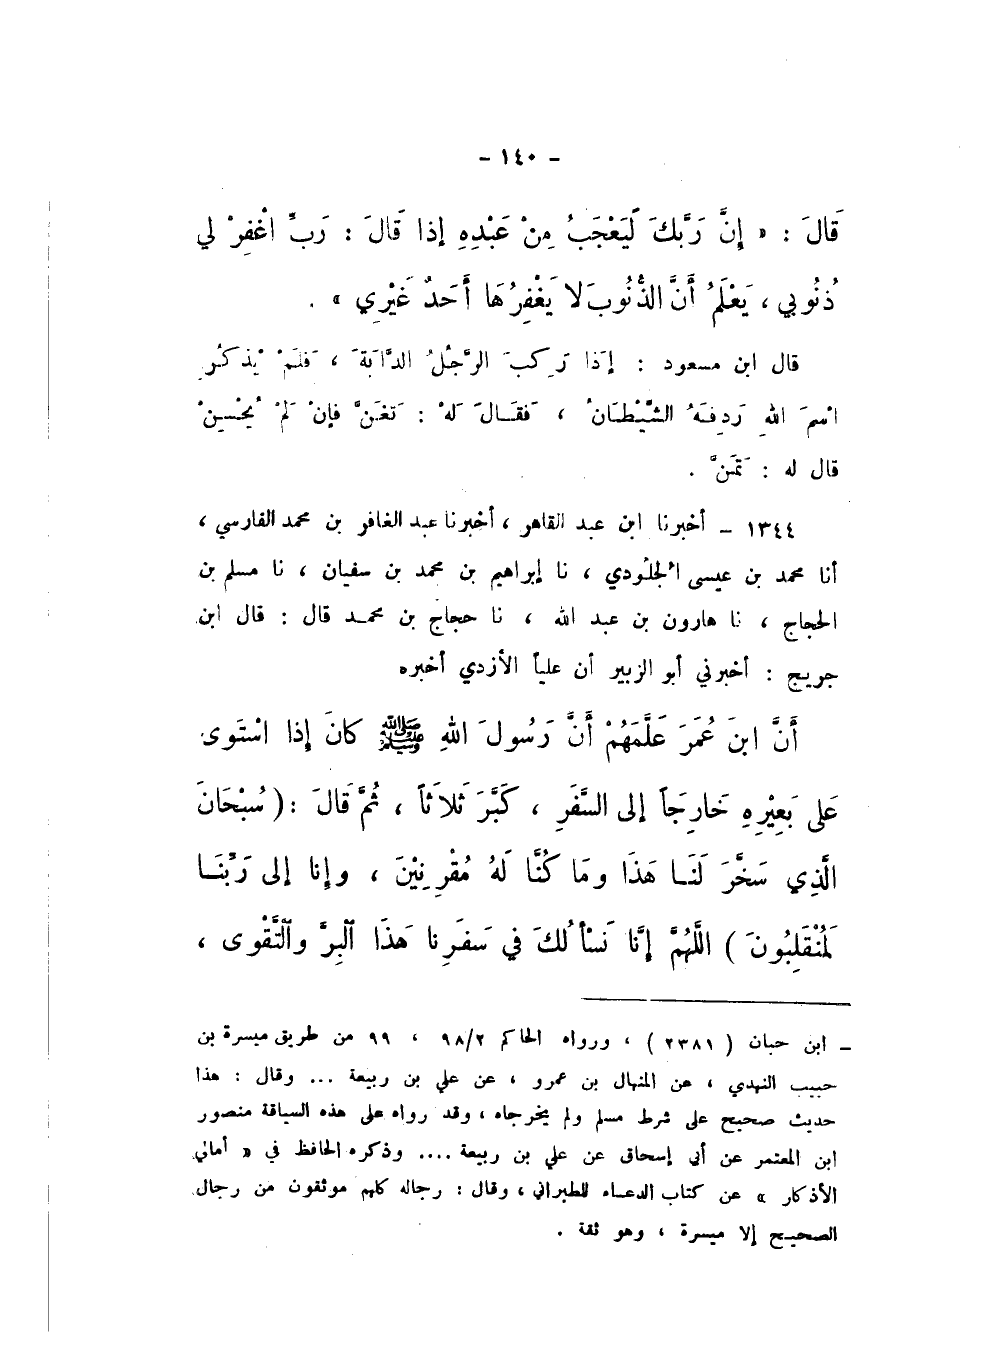 - ١٤٠ -
قَالَ : « إِنَّ رَبَّكَ لَيَعْجَبُ مِنْ عَبْدِهِ إِذا قَالَ : رَبِّ اغْفِرْ لي
ذُنُوبي ، يَعْلَمُ أَنَّ الذُّنُوبَ لا يَغْفِرُهَا أَحَدٌ غَيْرِي » .
قال ابن مسعود : إِذَا رَكِبَ الرَّجُلُ الدَّابَةَ ، فَلَمْ يَذكُرِ
اسْمَ اللهِ رَدِفَهُ الشَّيْطَانُ ، فَقَالَ لَهُ : تَغَنَّ فإنْ لَمْ يُحْسِنْ
قال له : تَمَنَّ .
١٣٤٤ - أخبرنا ابن عبد القاهر ، أخبرنا عبد الغافر بن محمد الفارسي ،
أنا محمد بن عيسى الجلُودي ، نا إبراهيم بن محمد بن سفيان ، نا مسلم بن
الحجاج ، نا هارون بن عبد الله ، نا حجاج بن محمد قال : قال ابن
جريج : أخبرني أبو الزبير أن علياً الأزدي أخبره
أَنَّ ابنَ عُمَرَ عَلَّمَهُمْ أَنَّ رَسُولَ اللهِ ﷺ كانَ إِذا اسْتَوى
عَلى بَعِيْرِهِ خَارِجَاً إلى السَّفَرِ ، كَبَّرَ ثَلاثَاً ، ثُمَّ قَالَ : ( سُبْحَانَ
الَّذِي سَخَّرَ لَنَا هَذَا ومَا كُنَّا لَهُ مُقْرِنِيْنَ ، وإنا إلى رَبِّنَا
لَمُنْقَلِبُونَ ) اللَّهُمَّ إِنَّا نَسْأَلُكَ في سَفَرِنا هَذَا اَلبِرَّ واَلتَّقْوى ،
ـ ابن حبان ( ٢٣٨١ ) ، ورواه الحاكم ٩٨/٢ ، ٩٩ من طريق ميسرة بن
حبيب النهدي ، عن المنهال بن عمرو ، عن علي بن ربيعة ... وقال : هذا
حديث صحيح على شرط مسلم ولم يخرجاه ، وقد رواه على هذه السياقة منصور
ابن المعتمر عن أبي إسحاق عن علي بن ربيعة .... وذكره الحافظ في « أمالي
الأذكار » عن كتاب الدعاء للطبراني ، وقال : رجاله كلهم موثقون من رجال
الصحيح إلا ميسرة ، وهو ثقة .